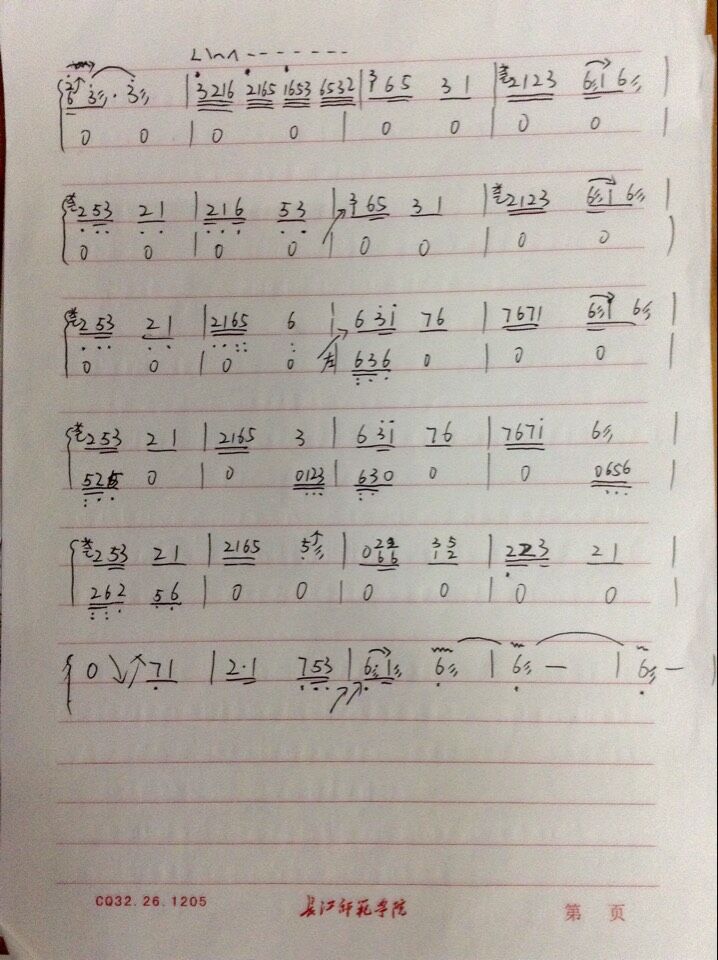 6 3 · 3 | 3216 2165 1653 6532 | 3 65 3 1 | 2123 6 1 6 |
0 0 | 0 0 | 0 0 | 0 0 |
253 21 | 216 53 | 3 65 3 1 | 2123 6 1 6 |
0 0 | 0 0 | 0 0 | 0 0 )
253 21 | 2165 6 | 631 76 | 7671 6 1 6 |
0 0 | 0 0 左 | 636 0 | 0 0 |
253 21 | 2165 3 | 631 76 | 7671 6 |
0 | 0 0123 | 630 0 | 0 0656 |
253 21 | 2165 5 | 0 | 21 |
262 56 | 0 0 | 0 0 | 0 0 |
0 71 | 2·1 753 | 6 1 6 | 6 — | 6 — )
CQ32.26.1205 长江师范学院 第 页